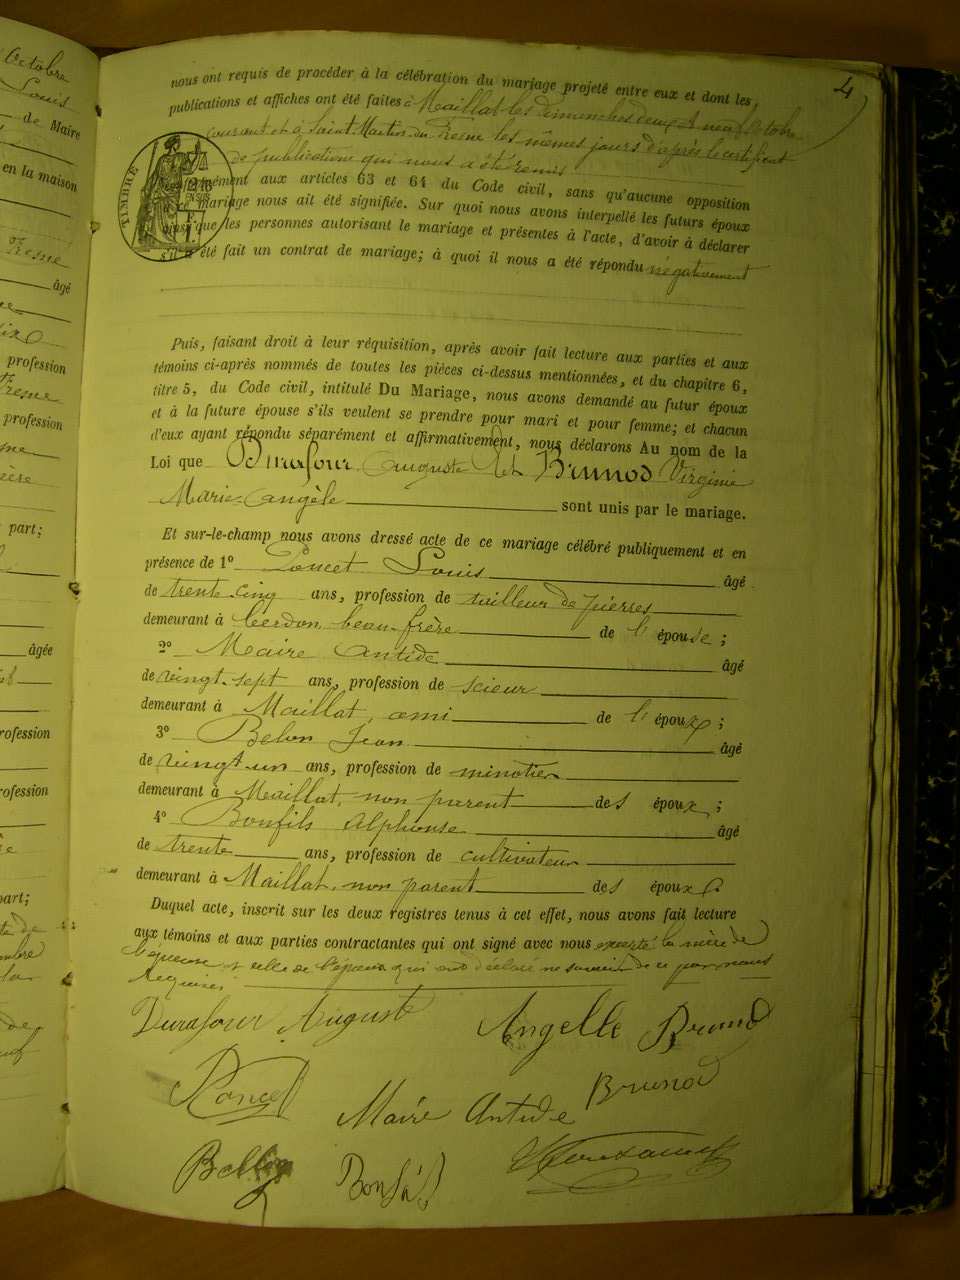 4
nous ont requis de procéder à la célébration du mariage projeté entre eux et dont les,
publications et affiches ont été faites à Maillat les dimanches deux & neuf Octobre
courant et à Saint Martin du Fresne les mêmes jours d'après le certificat
de publication qui nous a été remis
conformément aux articles 63 et 64 du Code civil, sans qu'aucune opposition
à ce mariage nous ait été signifiée. Sur quoi nous avons interpellé les futurs époux
ainsi que les personnes autorisant le mariage et présentes à l'acte, d'avoir à déclarer
s'il a été fait un contrat de mariage; à quoi il nous a été répondu négativement
TIMBRE
Puis, faisant droit à leur réquisition, après avoir fait lecture aux parties et aux
témoins ci-après nommés de toutes les pièces ci-dessus mentionnées, et du chapitre 6,
titre 5, du Code civil, intitulé Du Mariage, nous avons demandé au futur époux
et à la future épouse s'ils veulent se prendre pour mari et pour femme; et chacun
d'eux ayant répondu séparément et affirmativement, nous déclarons Au nom de la
Loi que Durafour Auguste et Brunod Virginie
Marie-Angèle sont unis par le mariage.
Et sur-le-champ nous avons dressé acte de ce mariage célébré publiquement et en
présence de 1° Poncet Louis âgé
de trente-cinq ans, profession de tailleur de pierres
demeurant à Cerdon, beau-frère de l'épouse;
2° Maire Antide âgé
de vingt-sept ans, profession de scieur
demeurant à Maillat, ami de l'époux;
3° Belon Jean âgé
de vingt-un ans, profession de minotier
demeurant à Maillat, non parent des époux;
4° Bonfils Alphonse âgé
de trente ans, profession de cultivateur
demeurant à Maillat, non parent des époux.
Duquel acte, inscrit sur les deux registres tenus à cet effet, nous avons fait lecture
aux témoins et aux parties contractantes qui ont signé avec nous excepté la mère de
l'épouse et celle de l'époux qui ont déclaré ne savoir de ce par nous
requises.
Durafour August Angelle Brunod
Poncet Maire Antide Brunod
Bellon Bonfils
Octobre
Louis
de Maire
en la maison
Fresne
âgé
profession
Fresne
profession
part;
âgée
profession
profession
part;